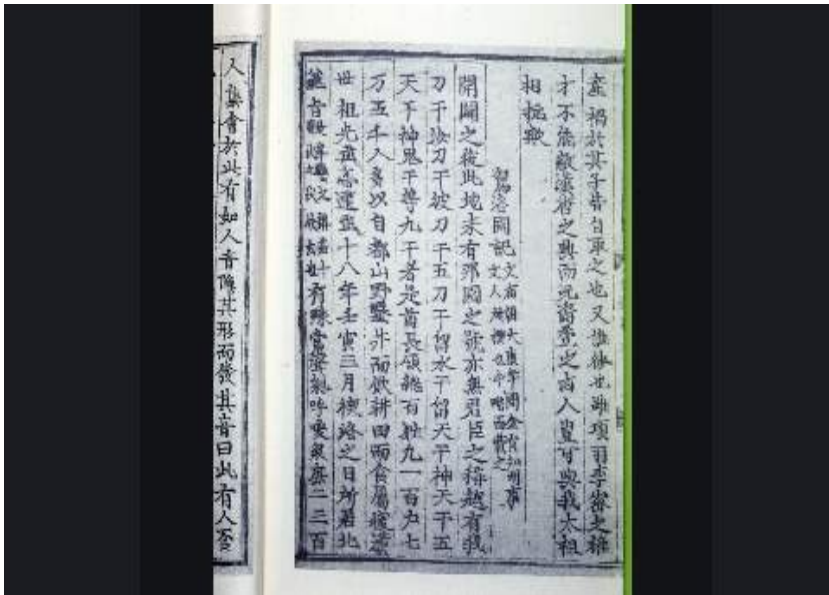 産禍於其子皆自取之也又誰咎也雖項羽李密之雄
才不能敵漢唐之興而况萱之凶人豈可與我太祖
相抗歟
駕洛國記
文廟朝大康年間金官知州事
文人所撰也今略而載之
開闢之後此地未有邦國之號亦無君臣之稱越有我
刀干汝刀干彼刀干五刀干留水干留天干神天干五
天干神鬼干等九干者是酋長領緫百姓九一百户七
万五千人多以自都山野鑿井而飲耕田而食属後漢
世祖光武帝建武十八年壬寅三月禊洛之日所居北
龜旨有殊常聲氣呼喚衆庶二三百
人集會於此有如人音隱其形而發其音曰此有人否